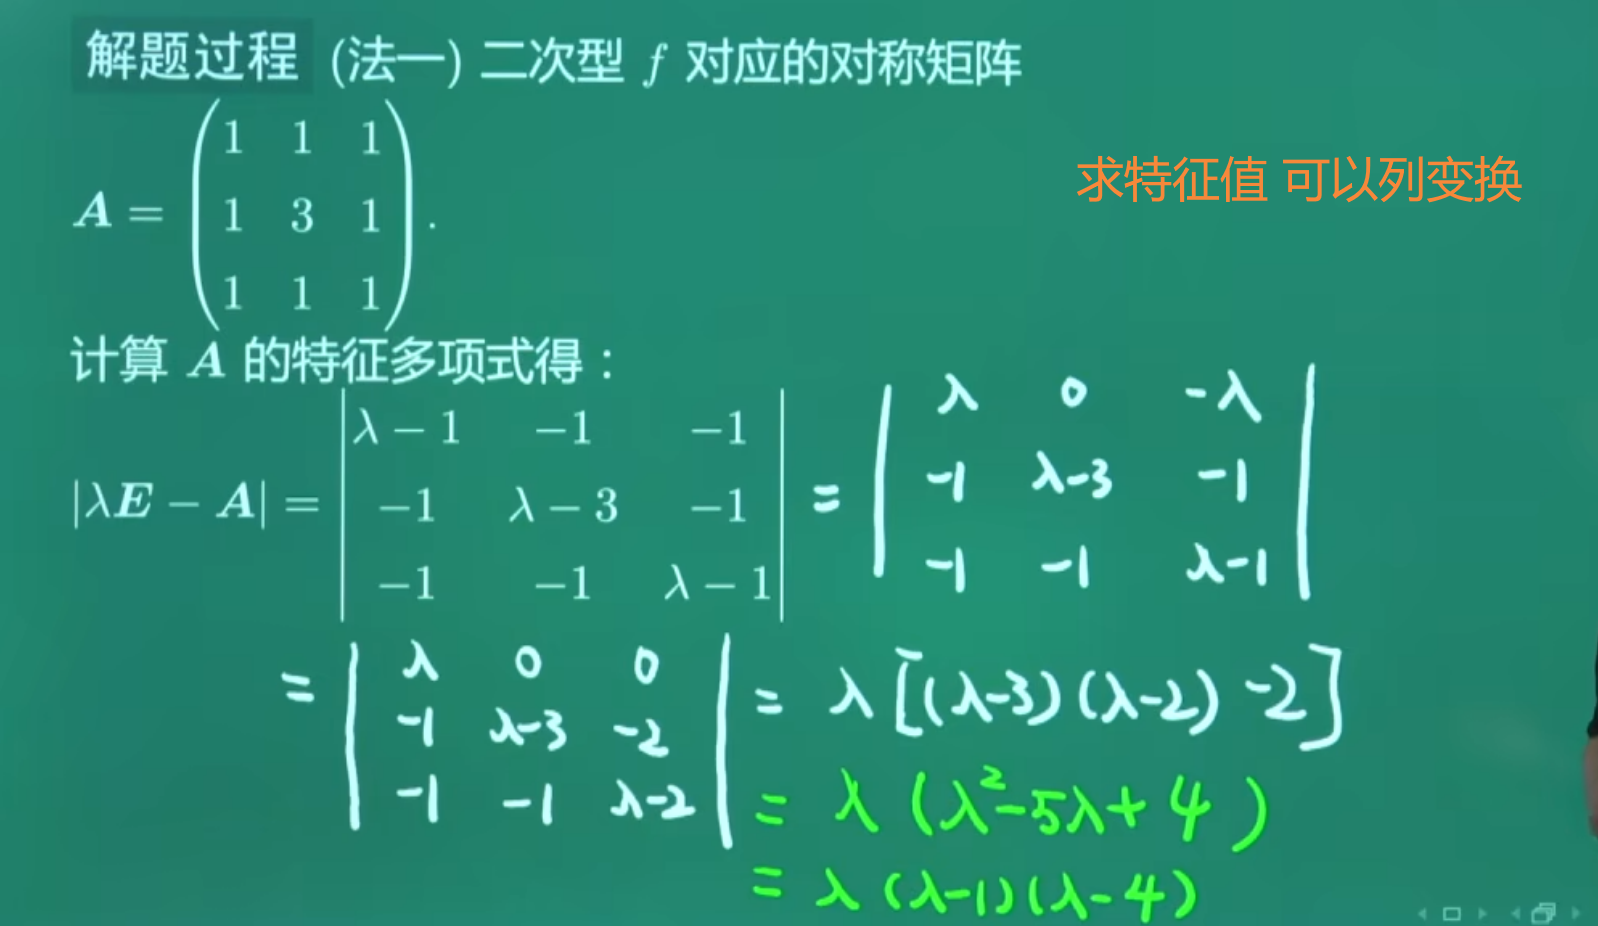 解题过程 (法一) 二次型 f 对应的对称矩阵
求特征值 可以列变换
A =
1 1 1
1 3 1
1 1 1
.
计算 A 的特征多项式得：
|λE − A| =
λ − 1 −1 −1
−1 λ − 3 −1
−1 −1 λ − 1
=
λ 0 -λ
-1 λ-3 -1
-1 -1 λ-1
=
λ 0 0
-1 λ-3 -2
-1 -1 λ-2
= λ[(λ-3)(λ-2)-2]
= λ(λ²-5λ+4)
= λ(λ-1)(λ-4)